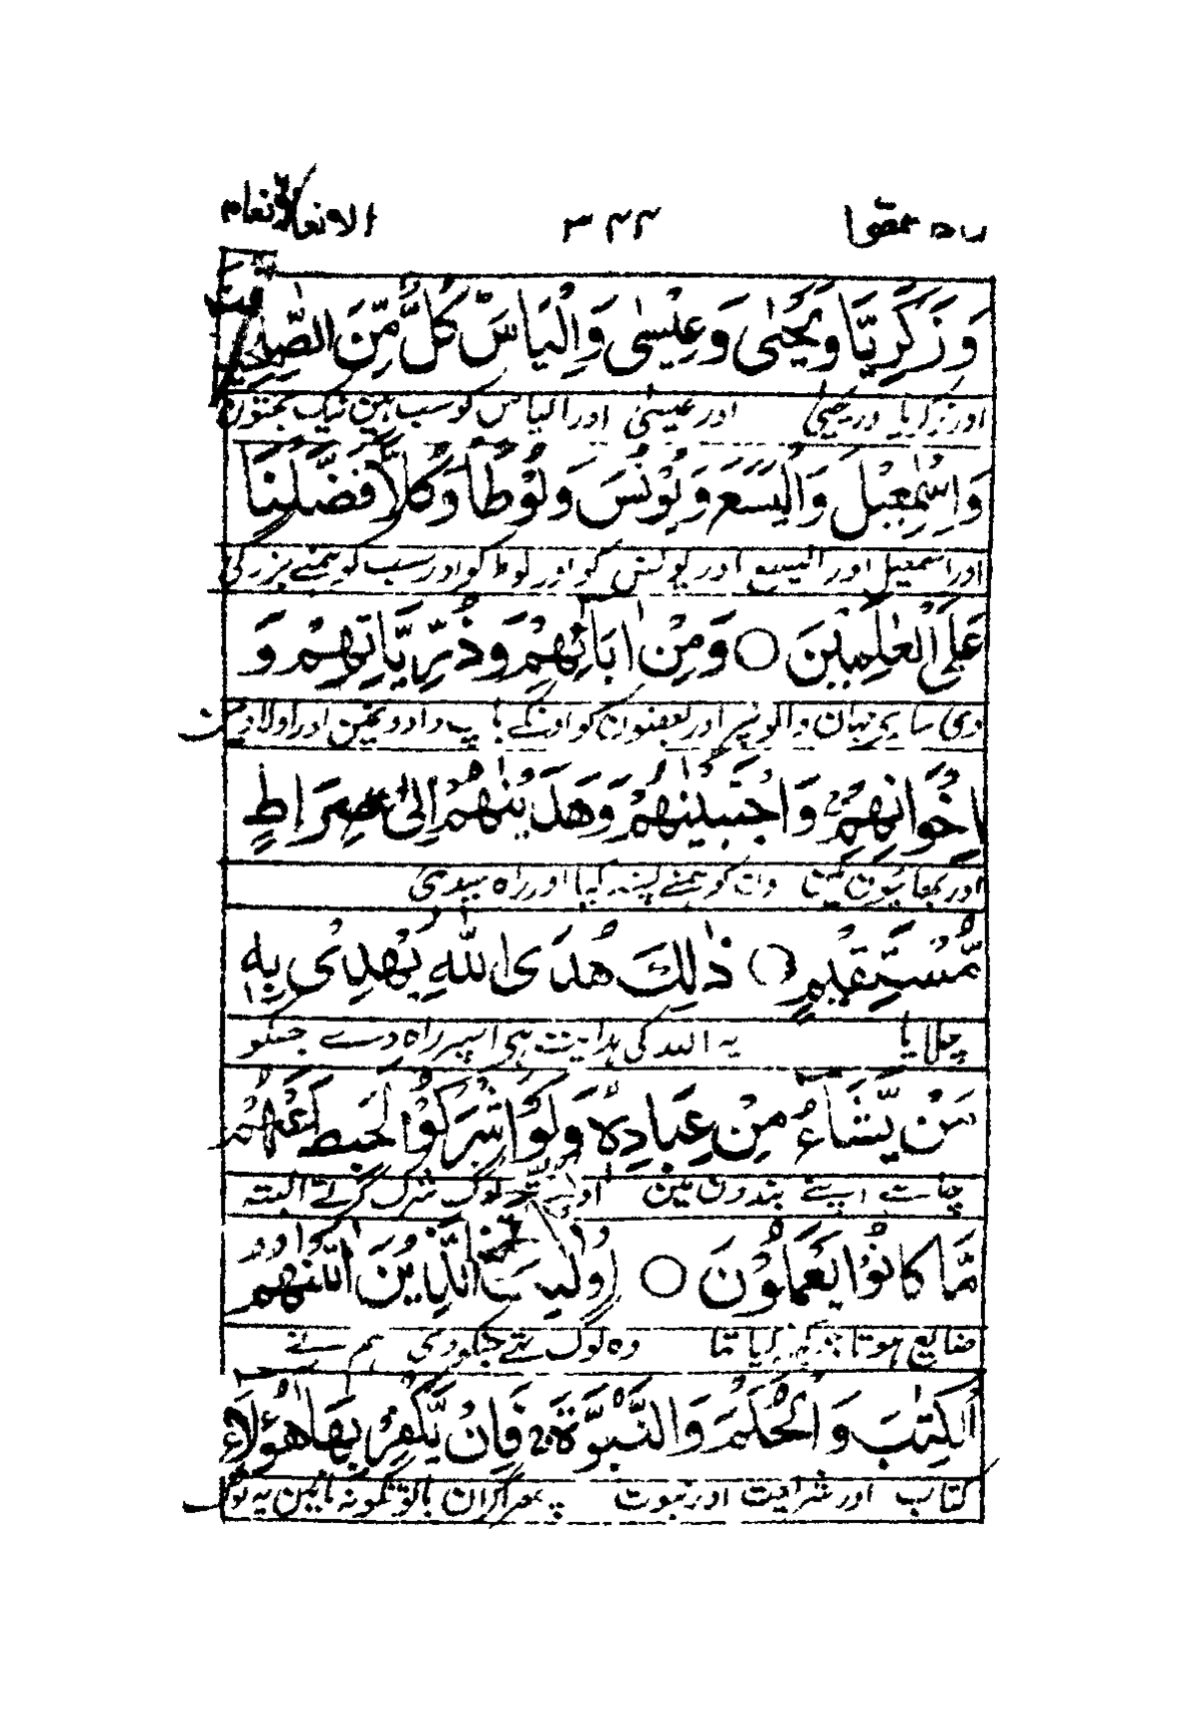 ۳۴۴ الانعام
وَزَكَرِيَّا وَيَحْيٰى وَعِيْسٰى وَاِلْيَاسَ كُلٌّ مِّنَ الصّٰلِحِيْنَ
اور زکریا اور یحییٰ اور عیسیٰ اور الیاس کو سب ہین نیک بختون
وَاِسْمٰعِيْلَ وَالْيَسَعَ وَيُوْنُسَ وَلُوْطًا وَكُلًّا فَضَّلْنَا
اور اسمعیل اور الیسع اور یونس کو اور لوط کو اور سب کو ہمنے بزرگی
عَلَى الْعٰلَمِيْنَ ○ وَمِنْ اٰبَآئِهِمْ وَذُرِّيَّاتِهِمْ وَ
دی سارے جہان والون پر اور بعضون کو اونکے باپ دادون مین اور اولاد مین
اِخْوَانِهِمْ وَاجْتَبَيْنٰهُمْ وَهَدَيْنٰهُمْ اِلٰى صِرَاطٍ
اور بھائیون مین اون کو ہمنے پسند کیا اور راہ سیدھی
مُّسْتَقِيْمٍ ○ ذٰلِكَ هُدَى اللّٰهِ يَهْدِىْ بِهٖ
چلایا یہ اللہ کی ہدایت ہی اسپر راہ دے جسکو
مَنْ يَّشَآءُ مِنْ عِبَادِهٖ وَلَوْ اَشْرَكُوْا لَحَبِطَ عَنْهُمْ
چاہے اپنے بندون مین اور لوگ شرک کرتے البتہ
مَّا كَانُوْا يَعْمَلُوْنَ ○ اُولٰٓئِكَ الَّذِيْنَ اٰتَيْنٰهُمُ
ضایع ہوتا کیا تھا وہ لوگ تھے جنکو دی ہم نے
الْكِتٰبَ وَالْحُكْمَ وَالنُّبُوَّةَ ج فَاِنْ يَّكْفُرْ بِهَا هٰٓؤُلَآءِ
کتاب اور شریعت اور نبوت پھر اگر ان باتونکو نہ مانین یہ لوگ